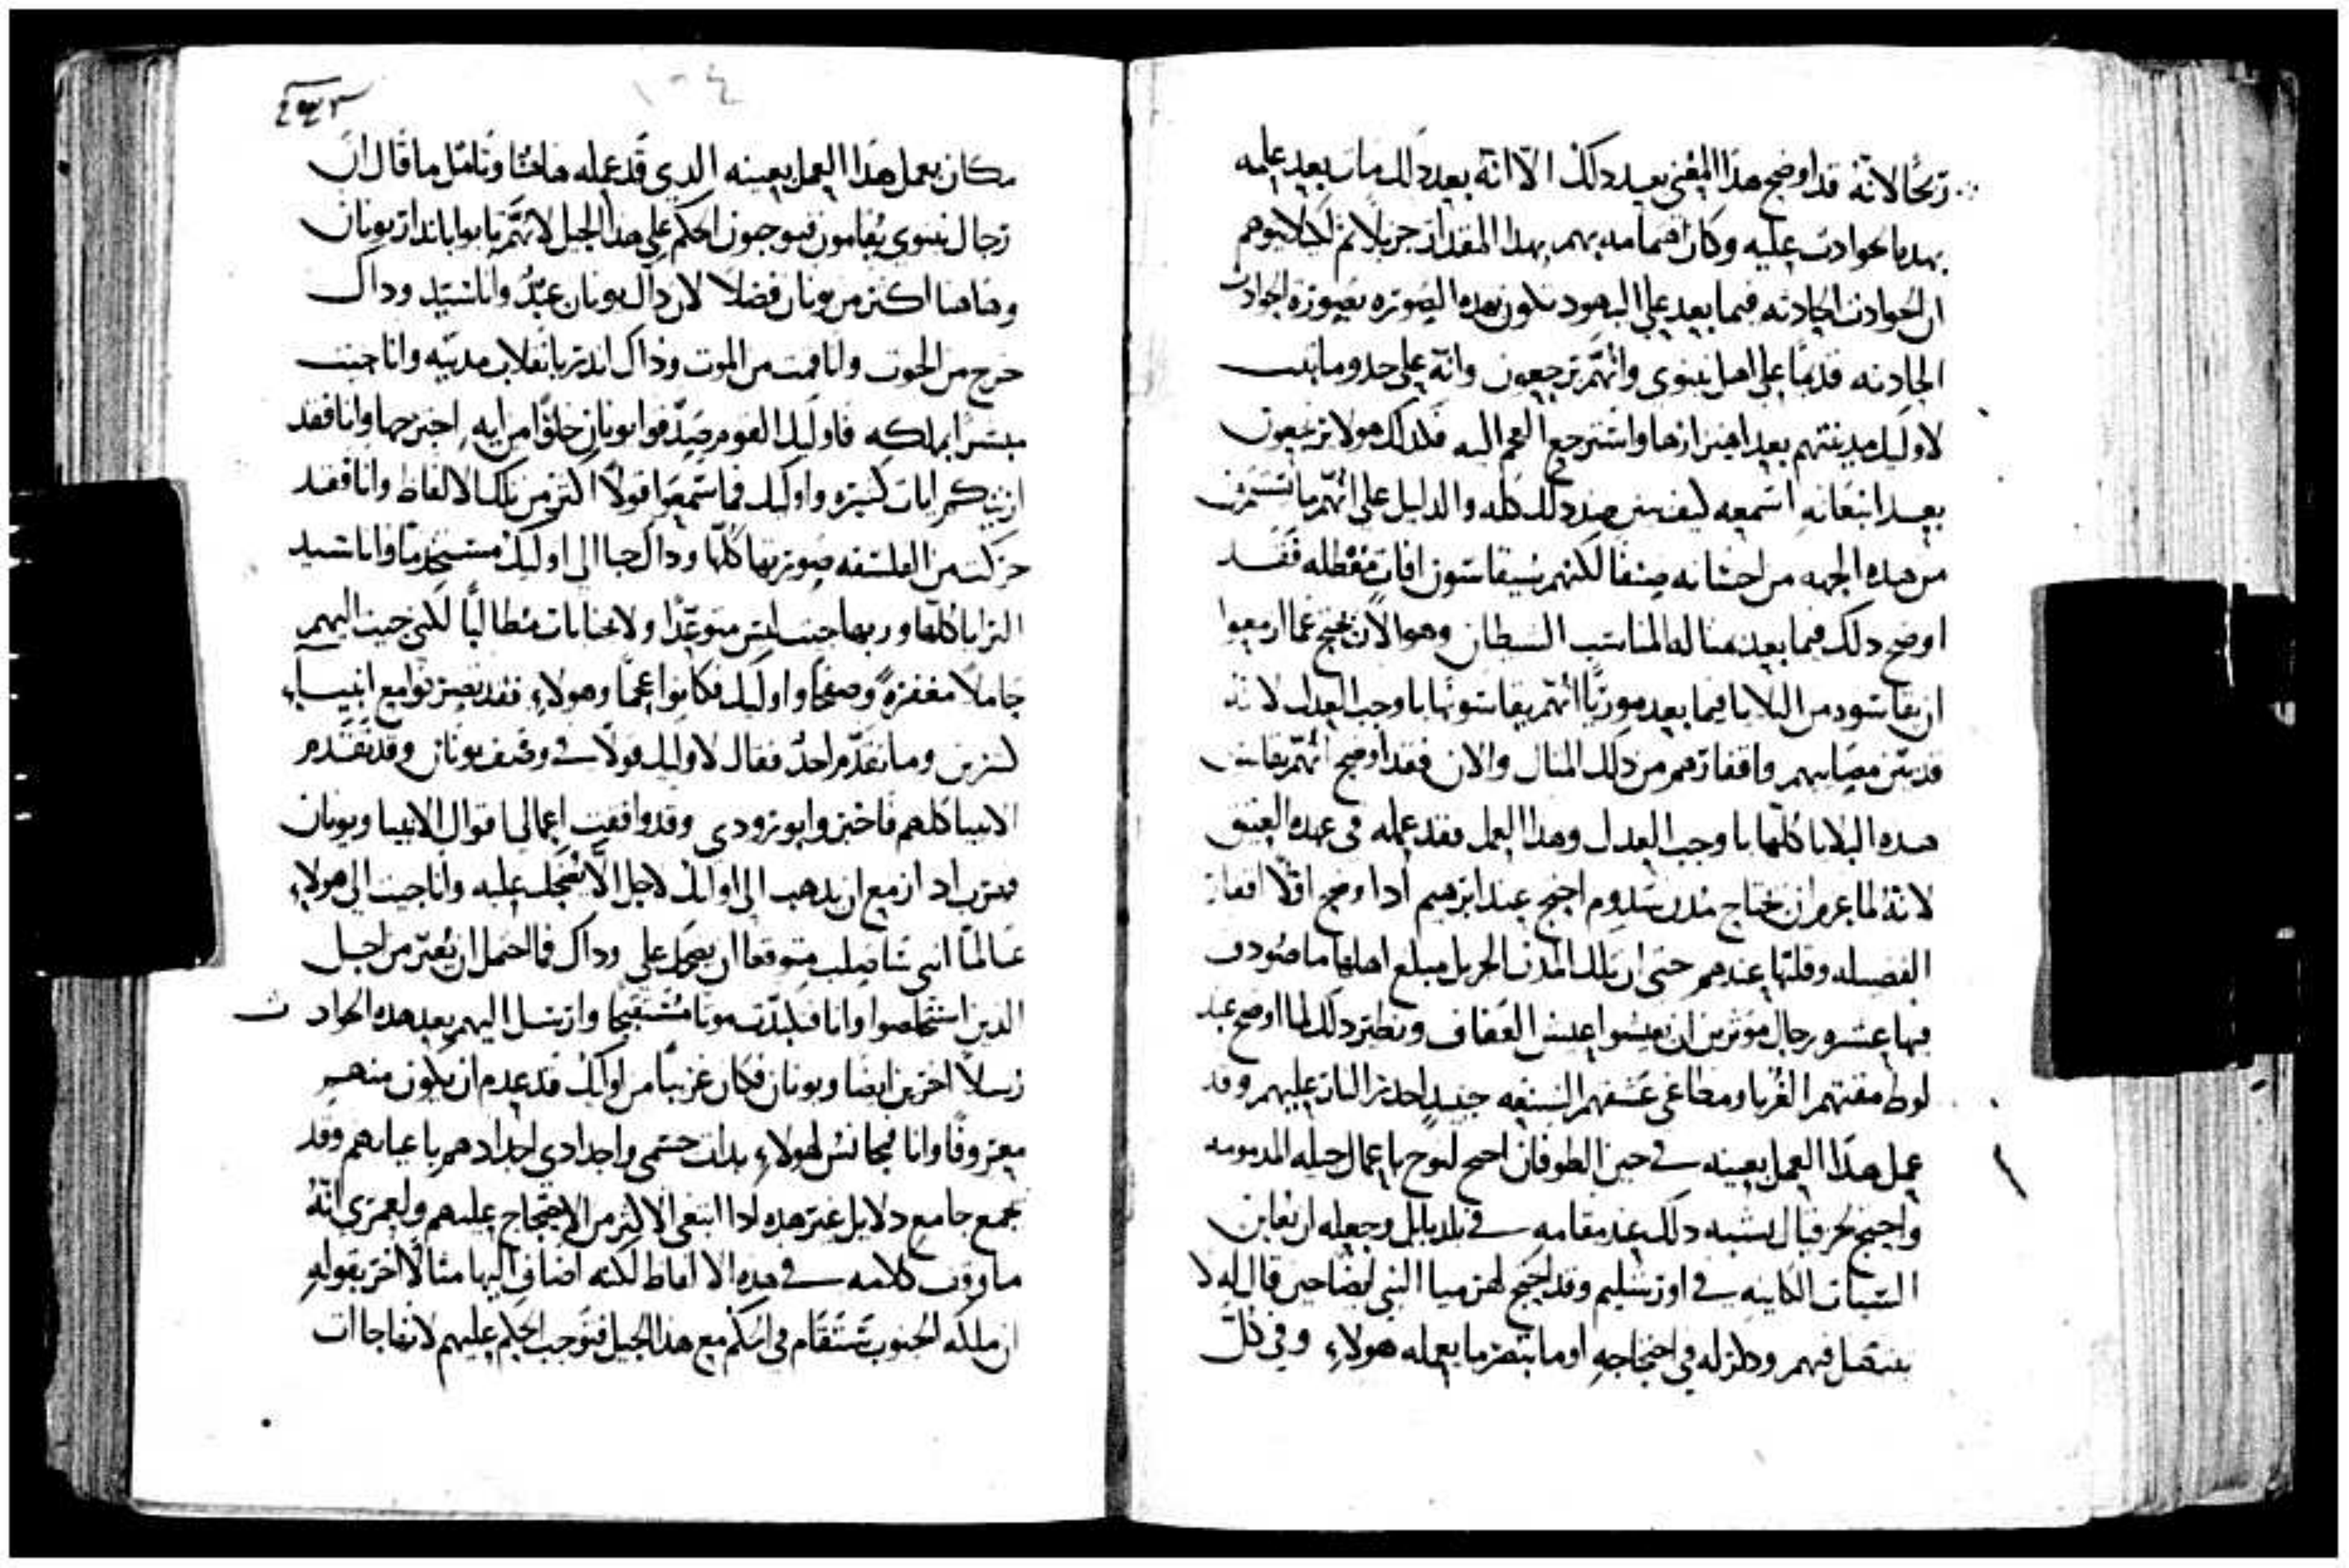 ربحًا لانه قد اوضح هذا المعنى بعد دلك الا انه بعد دلك مات بعد علمه
بهده الحوادت عليه وكان اهتمامه بهم بهدا المقدار جزيلا ثم لكيلا يتوهم
ان الحوادت الحادته فيما بعد على اليهود تكون بهده الصوره بصورة الحوادت
الحادته قديمًا على اهل نينوى وانهم يرجعون وانه على حدو ما ثبت
لاوليك مدينتهم بعد اهتزازها واسترجع العجم اليه فكدلك هولا يرجعون
بعد انبعاته اسمعه كيف يبين ضد دلك كله والدليل على انهم ما يستمرون
من هده الجهه من احسانه صنفا لكنهم سيقاسون افات معضله فقد
اوضح دلك فيما بعد مثاله المناسب الشيطان وهو الان يحتج عما ازمعوا
ان يقاسوه من البلايا فيما بعد موريًا انهم يقاسونها باوجب العدل لانه
قد بين مصايبهم واقفارهم من دلك المثال والان فقد اوضح انهم يقاسون
هده البلايا كلها باوجب العدل وهدا العمل فقد عمله في عهده العتيق
لانه لما عزم ان يجتاح مدن سدوم احتج عند ابرهيم ادا اوضح اولا اقفار
الفضيله وقلتها عندهم حتى ان تلك المدن الجزيل مبلغ اهلها ما صودف
فيها عشره رجال موثرين ان يعيشوا عيش العفاف ونظير دلك لما اوضح عند
لوط مقتهم الغربا ومطاعن عشقهم الشنيعه حينيد احدر النار عليهم وقد
عمل هدا العمل بعينه في حين الطوفان احتج لنوح باعمال جيله المدمومه
واحتج لحزقيال بشبه دلك عند مقامه في بلد بابل وجعله ان يعاين
السيات الكاينه في اورشليم وقد احتج لهرميا النبي ايضا حين قال له لا
تتصل فيهم ودلز له في احتجاجه اوما تبصر ما يعمله هولاء وفي كل
١٠٤
مكان يعمل هدا العمل بعينه الدي قد عمله هاهنا وتامل ما قال ان
رجال نينوى يقامون فيوجبون الحكم على هدا الجيل لانهم تابوا بانذار يونان
وهاهنا اكثر من يونان فضلا لان داك يونان عبد وانا سيد وداك
خرج من الحوت وانا قمت من الموت وداك اندر بانقلاب مدينه وانا جيت
مبشرا بملكه فاوليك القوم صدقوا يونان خلوًا من ايه اجترحها وانا فقد
اريتكم ايات كثيره واوليك فما سمعوا قولًا اكثر من تلك الالفاظ وانا فقد
حركت من الفلسفه صورتها كلها وداك جا الى اوليك مستخدمًا وانا سيد
البرايا كلها وربها جيت ليس متوعدًا ولا بجنايات مطالبًا لكني جيت اليهم
حاملًا مغفرة وصفحًا واوليك فكانوا عجما وهولاء فقد تصرفوا مع انبياء
كثيرين وما تقدم احد فقال لاوليك قولا في وصف يونان وقد تقدم
الانبيا كلهم فاخبروا بورودي وقد وافقت اعمالي اقوال الانبيا ويونان
فهرب اد ازمع ان يدهب الى اوليك لاجل الا يضحك عليه وانا جيت الى هولاء
عالمًا انني ساصلب متوقعا ان يضحك علي وداك فما احتمل ان يعير من اجل
الدين استخلصوا وانا فكابدت موتا مستقبحا وارسل اليهم بعد هده الحوادث
رسلًا اخرين ايضا ويونان فكان غريبًا من اوليك قد عدم ان يكون منهم
معروفًا وانا فمجانس لهولاء بدات جسمي واجدادي اجدادهم باعيانهم وقد
يجمع جامع دلايل غير هده ادا ابتغى الاكثر من الاحتجاج عليهم ولعمري انه
ما وقف كلامه في هده الالفاظ لكنه اضاف اليها مثالًا اخر بقوله
ان ملكه الجنوب ستقام في الحكم مع هدا الجيل فتوجب الحكم عليهم لانها جات